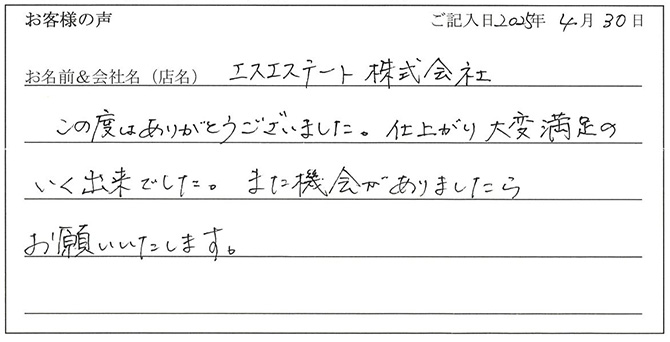 お客様の声 ご記入日2025年 4月 30日
お名前&会社名(店名) エスエステート 株式会社
この度はありがとうございました。仕上がり 大変満足の
いく出来でした。また機会がありましたら
お願いいたします。